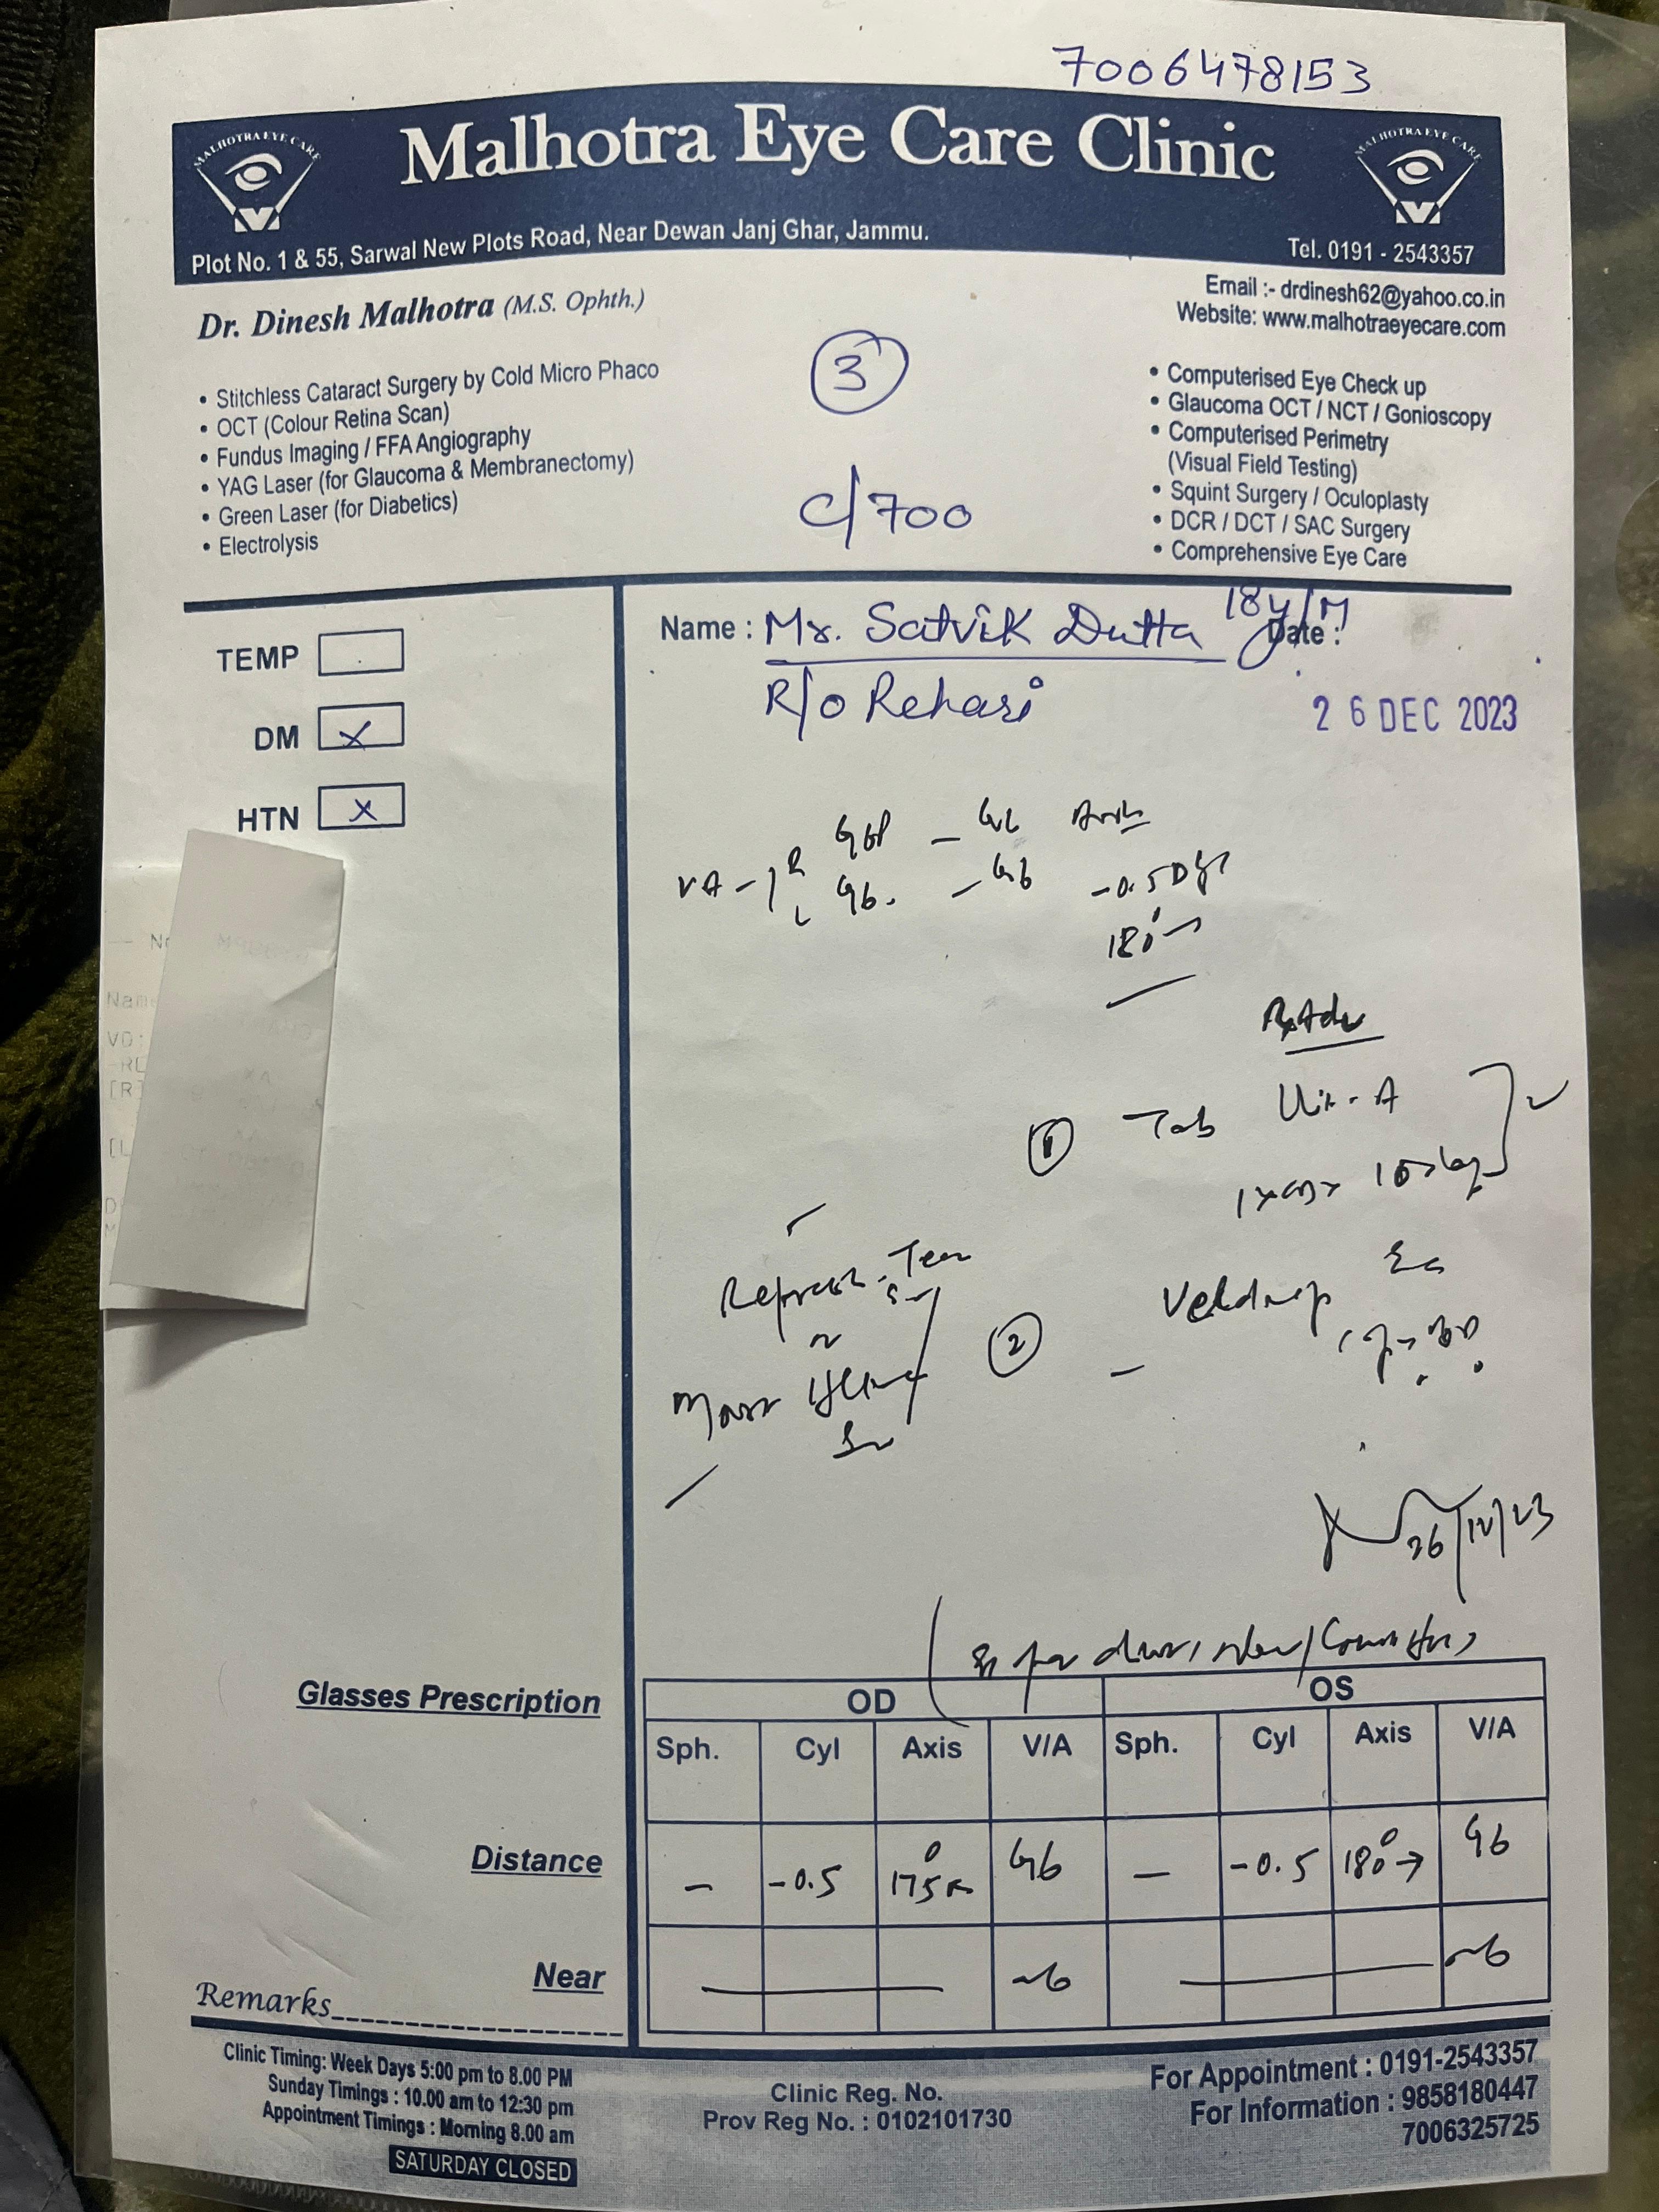 7006478153
MALHOTRA EYE CARE
Malhotra Eye Care Clinic
MALHOTRA EYE CARE
Plot No. 1 & 55, Sarwal New Plots Road, Near Dewan Janj Ghar, Jammu.
Tel. 0191 - 2543357
Dr. Dinesh Malhotra (M.S. Ophth.)
Email :- drdinesh62@yahoo.co.in
Website: www.malhotraeyecare.com
• Stitchless Cataract Surgery by Cold Micro Phaco
• OCT (Colour Retina Scan)
• Fundus Imaging / FFA Angiography
• YAG Laser (for Glaucoma & Membranectomy)
• Green Laser (for Diabetics)
• Electrolysis
3
c/700
• Computerised Eye Check up
• Glaucoma OCT / NCT / Gonioscopy
• Computerised Perimetry
(Visual Field Testing)
• Squint Surgery / Oculoplasty
• DCR / DCT / SAC Surgery
• Comprehensive Eye Care
TEMP
DM x
HTN x
Name : Mr. Satvik Dutta 18y/M Date :
R/o Rehari
26 DEC 2023
VA - R
L 6/6. - 6/6 -0.5D
180°
Name
VD:
[R]
[L
1 Tab
Refresh Tear
2
26/12/23
Glasses Prescription
OD OS
Sph. Cyl Axis V/A Sph. Cyl Axis V/A
Distance — -0.5 175° 6/6 — -0.5 180° 6/6
Near N6 N6
Remarks
Clinic Timing: Week Days 5:00 pm to 8.00 PM
Sunday Timings : 10.00 am to 12:30 pm
Appointment Timings : Morning 8.00 am
SATURDAY CLOSED
Clinic Reg. No.
Prov Reg No. : 0102101730
For Appointment : 0191-2543357
For Information : 9858180447
7006325725